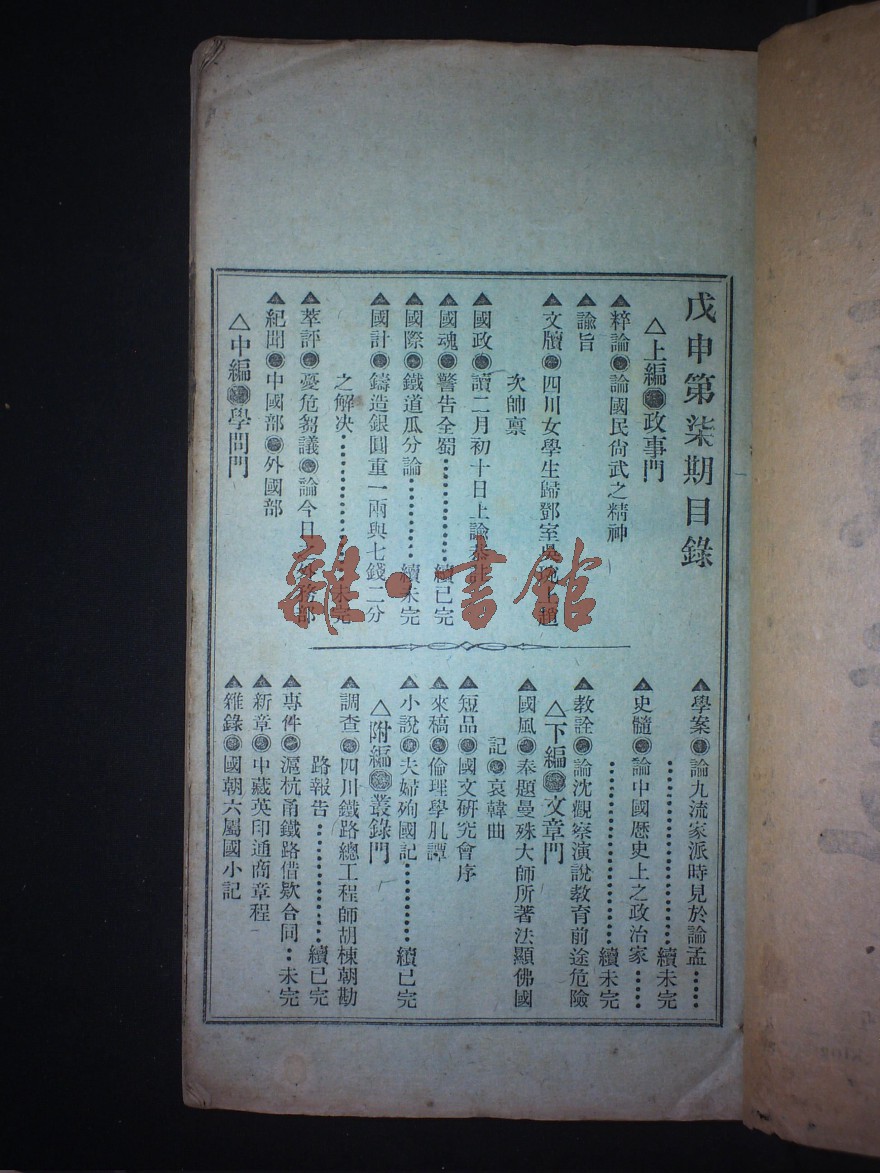 戊申第柒期目錄
△上編●政事門
▲粹論●論國民尙武之精神
▲諭旨
▲文牘●四川女學生歸鄧室吳
次帥禀
▲國政●讀二月初十日上諭恭註
▲國魂●警告全蜀………續已完
▲國際●鐵道瓜分論………續未完
▲國計●鑄造銀圓重一兩與七錢二分
之解决………未完
▲萃評●憂危芻議●論今日之外務部
▲紀聞●中國部●外國部
△中編●學問門
▲學案●論九流家派時見於論孟……
………續未完
▲史髓●論中國歷史上之政治家……
………續未完
▲教詮●論沈觀察演說教育前途危險
△下編●文章門
▲國風●奉題曼殊大師所著法顯佛國
記●哀韓曲
▲短品●國文研究會序
▲來稿●倫理學札譚
▲小說●夫婦殉國記………續已完
△附編●叢錄門
▲調查●四川鐵路總工程師胡棟朝勘
路報告………續已完
▲專件●滬杭甬鐵路借欵合同…未完
▲新章●中藏英印通商章程
▲雜錄●國朝六屬國小記
雜·書館